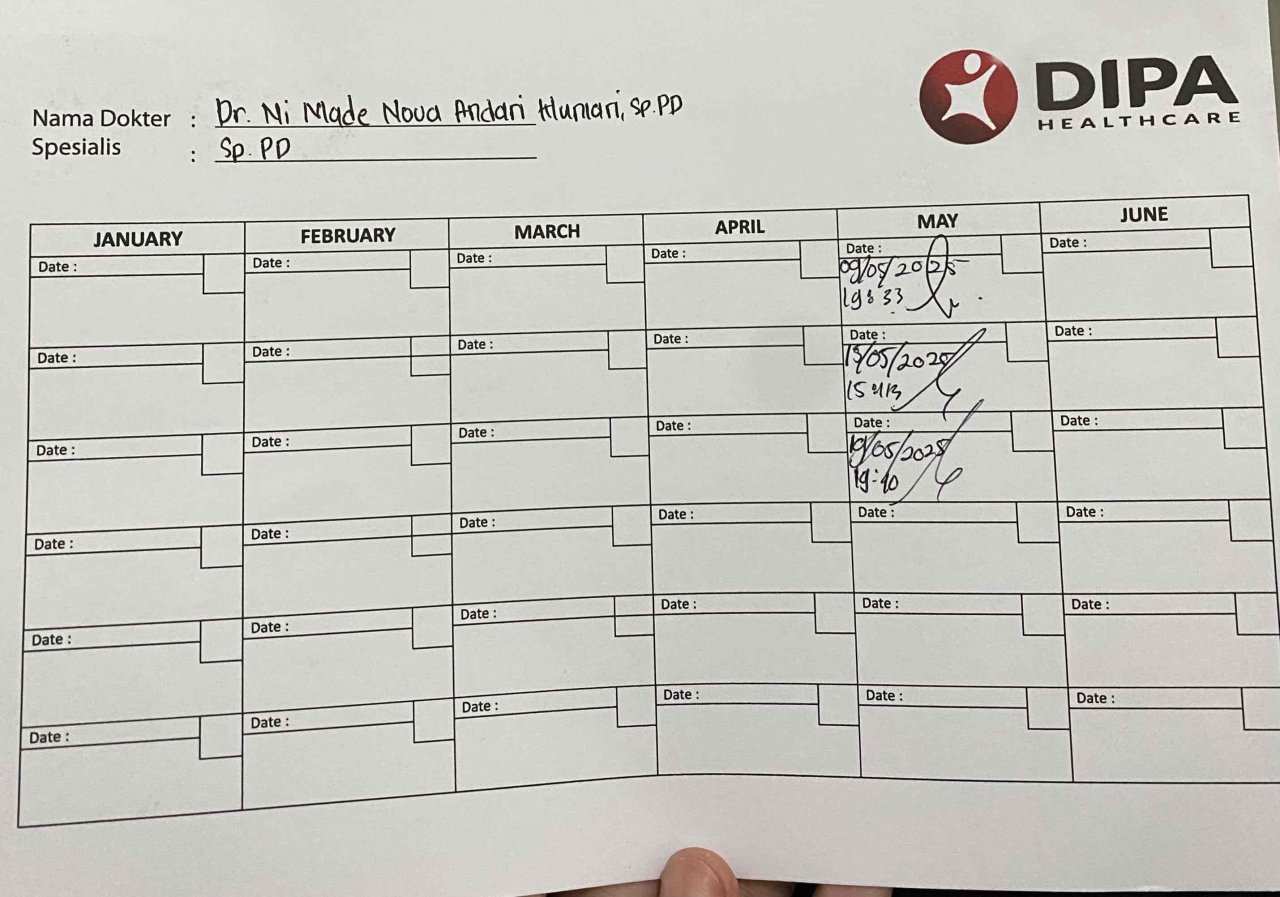 DIPA
HEALTHCARE
Nama Dokter : Dr. Ni Made Nova Andari, Sp.PD
Spesialis : Sp. PD
JANUARY FEBRUARY MARCH APRIL MAY JUNE
Date : Date : Date : Date : Date : Date :
09/05/2025
19:33
Date : Date : Date : Date : Date : Date :
/05/2025
Date : Date : Date : Date : Date : Date :
19/05/2025
Date : Date : Date : Date : Date : Date :
Date : Date : Date : Date : Date : Date :
Date : Date : Date : Date : Date : Date :